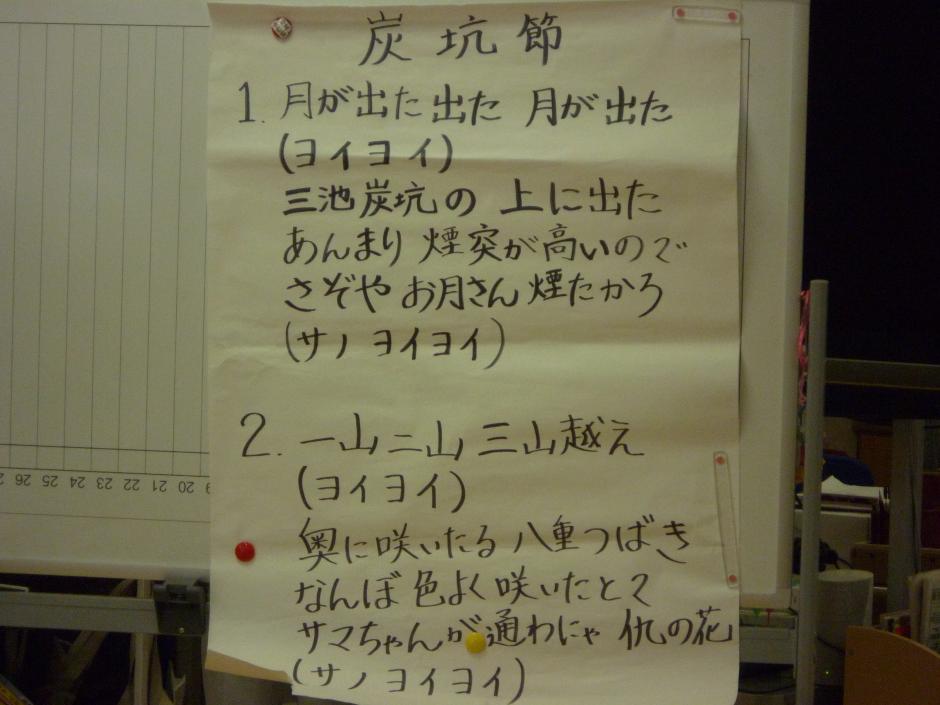 炭坑節
1. 月が出た出た 月が出た
(ヨイヨイ)
三池炭坑の 上に出た
あんまり 煙突が高いので
さぞや お月さん 煙たかろ
(サノ ヨイヨイ)
2. 一山 二山 三山越え
(ヨイヨイ)
奥に咲いたる 八重つばき
なんぼ 色よく 咲いたとて
サマちゃんが通わにゃ 仇の花
(サノ ヨイヨイ)
26 25 24 23 22 21 20